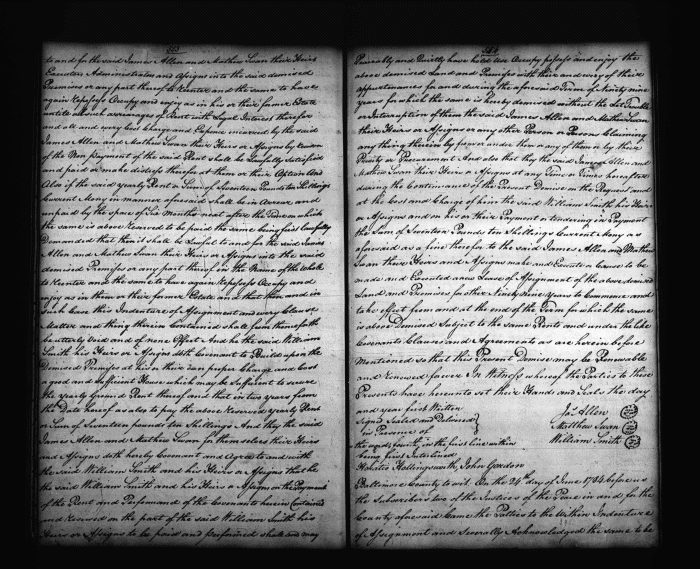 to and for the said James Allen and Mathew Swan their Heirs
Executors Administrators and Assigns into the said demised
Premises or any part thereof to Reenter and the same to have
again Repossess Occupy and enjoy as in his or their former Estate
untill all such arrearages of Rent with Legal Interest therefor
and all and every Cost Charge and Expence incurred by the said
James Allen and Mathew Swan their Heirs or Assigns by reason
of the Non payment of the said Rent shall be Lawfully Satisfied
and paid or make distress therefor at them or their Option And
Also if the said yearly Rent or Sum of Seventeen Pounds ten Shillings
Current Money in manner aforesaid shall be in arrear and
unpaid by the space of Six Months next after the Time on which
the same is above Reserved to be paid the same being first lawfully
Demanded that then it shall be Lawful to and for the said James
Allen and Mathew Swan their Heirs or Assigns into the said
demised Premises or any part thereof in the Name of the Whole
to Reenter and the same to have again Repossess Occupy and
enjoy as in them or their former Estate and that then and in
such Case this Indenture of Assignment and every Clause
Matter and thing therein Contained shall from thenceforth
be utterly Void and of none Effect And he the said William
Smith his Heirs or Assigns doth Covenant to Build upon the
Demised Premises at his or their own proper Charge and Cost
a good and Sufficient House which may be Sufficient to secure
the yearly Ground Rent thereof and that in two years from
the Date hereof as also to pay the above Reserved yearly Rent
or Sum of Seventeen pounds ten Shillings And they the said
James Allen and Mathew Swan for themselves their Heirs
and Assigns doth hereby Covenant and Agree to and with
the said William Smith and his Heirs or Assigns that he
the said William Smith and his Heirs or Assigns on the Payment
of the Rent and Performance of the Covenants herein Contained
and Reserved on the part of the said William Smith his
Heirs or Assigns to be paid and performed shall and may
Peaceably and Quietly have hold Use Occupy possess and enjoy the
above demised Land and Premises with their and every of their
appurtenances for and during the aforesaid Term of Ninety nine
years for which the same is hereby demised without the Let Trouble
or Interruption of them the said James Allen and Mathew Swan
their Heirs or Assigns or any other Person or Persons Claiming
any thing therein by from or under them or any of them or by their
Privity or Procurement And also that they the said James Allen and
Mathew Swan their Heirs or Assigns at any Time or Times hereafter
during the Continuance of the Present Demise on the Request and
at the Cost and Charge of him the said William Smith his Heirs
or Assigns and on his or their Payment or tendering in Payment
the Sum of Seventeen Pounds ten Shillings Current Money as
aforesaid as a fine therefor to the said James Allen and Mathew
Swan their Heirs and Assigns make and Execute or Cause to be
made and Executed a new Lease of Assignment of the above demised
Land and Premises for other Ninety nine Years to Commence and
to be effect from and at the end of the Term for which the same
is above Demised Subject to the same Rents and under the like
Covenants Clauses and Agreements as are herein before
Mentioned so that this Present Demise may be Renewable
and renewed forever In Witness whereof the Parties to these
Presents have hereunto set their Hands and Seals the day
and year first Written
Jas Allen
Signed Sealed and Delivered
Matthew Swan
in Presence of
William Smith
the words in the first line within
being first Interlined
Horatio Hollingsworth, John Gordon
Baltimore County to wit. On the 26th day of June 1784 before us
the Subscribers two of the Justices of the Peace in and for the
County aforesaid Came the Parties to the Within Indenture
of Assignment and Severally Acknowledged the same to be